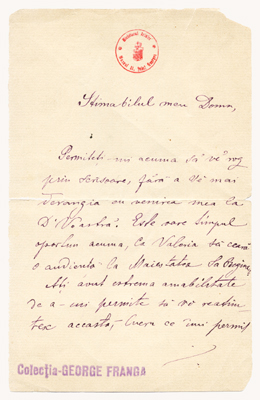 Stimabilul meu Domn,
Permiteti-mi acuma să vĕ rog
prin scrisoare, fără a Vĕ mai
derangia cu venirea mea la
D-Voastră. Este oare timpul
oportun acuma, ca Valeria să ceară
o audiență la Maiestatea Sa Regina
Ați avut estrema amabilitate
de a-mi permite să vĕ
aceasta, ceea ce îmi permit
Colecția-GEORGE FRANGA